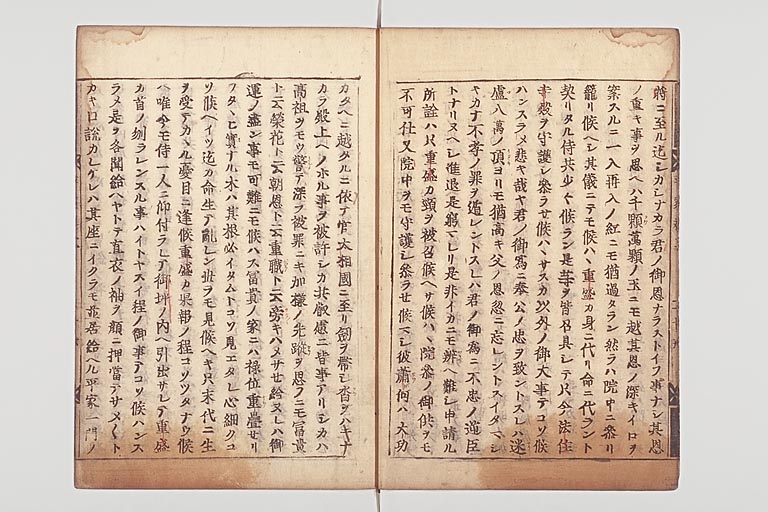 時ニ至ル迄シカシナカラ君ノ御恩ナラストイフ事ナシ其恩
ノ重キ事ヲ思ヘハ千顆萬顆ノ玉ニモ越其恩ノ深キイロヲ
案スルニ一入再入ノ紅ニモ猶過タラン然ラハ院中ニ参リ
籠リ候ヘシ其儀ニテモ候ハヽ重盛カ身ニ代リ命ニ代ラント
契リタル侍共少々候ラン是等ヲ皆召具シテ只今法住
寺殿ヲ守護シ参ラセ候ハヽサスカ以外ノ御大事テコソ候
ハンスラメ悲キ哉君ノ御為ニ奉公ノ忠ヲ致ントスレハ迷
盧八萬ノ頂ヨリモ猶高キ父ノ恩忽ニ忘レントスイタマシ
キカナ不孝ノ罪ヲ遁レントスレハ君ノ御為ニ不忠ノ逆臣
トナリヌヘシ進退是窮マレリ是非イカニモ辨ヘ難シ申請ル
所詮ハ只重盛カ頸ヲ被召候ヘサ候ハヽ院参ノ御供ヲモ
不可仕又院中ヲモ守護シ参ラセ候マシ彼蕭何ハ大功
カタヘニ越タルニ依テ官大相國ニ至リ劔ヲ帯シ沓ヲハキナ
カラ殿上ヘノホル事ヲ被許シカ共叡慮ニ背事アリシカハ
高祖ヲモツ警テ深ク被罪ニキ加様ノ先蹤ヲ思フニモ冨貴
ト云榮花ト云朝恩ト云重職ト云旁キハメサセ給ヌレハ御
運ノ盡ン事モ可難ニモ候ハス冨貴ノ家ニハ禄位重疊セリ
フタヽヒ實ナル木ハ其根必イタムトコソ見エタレ心細クコ
ソ候ヘイツ迄カ命生テ亂レン世ヲモ見候ヘキ只末代ニ生
ヲ受テカヽル憂目ニ逢候重盛カ果報ノ程コソツタナウ候
ヘ唯今モ侍一人ニ仰付ラレテ御坪ノ内ヘ引出サレテ重盛
カ首ノ刎ラレンスル事ハイトヤスイ程ノ御事テコソ候ハンス
ラメ是ヲ各聞給ヘヤトテ直衣ノ袖ヲ顔ニ押當テサメ〱ト
カキ口説カレケレハ其座ニイクラモ並居給ヘル平家一門ノ